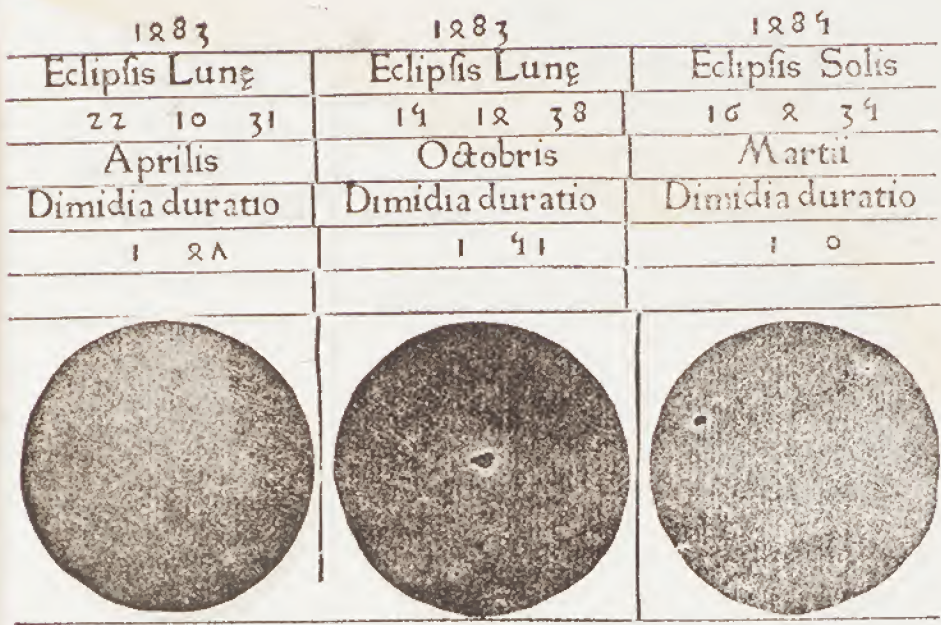 1483 1483 1485
Eclipſis Lunę Eclipſis Lunę Eclipſis Solis
22 10 31 15 14 38 16 4 35
Aprilis Octobris Martii
Dimidia duratio Dimidia duratio Dimidia duratio
1 47 1 51 1 0